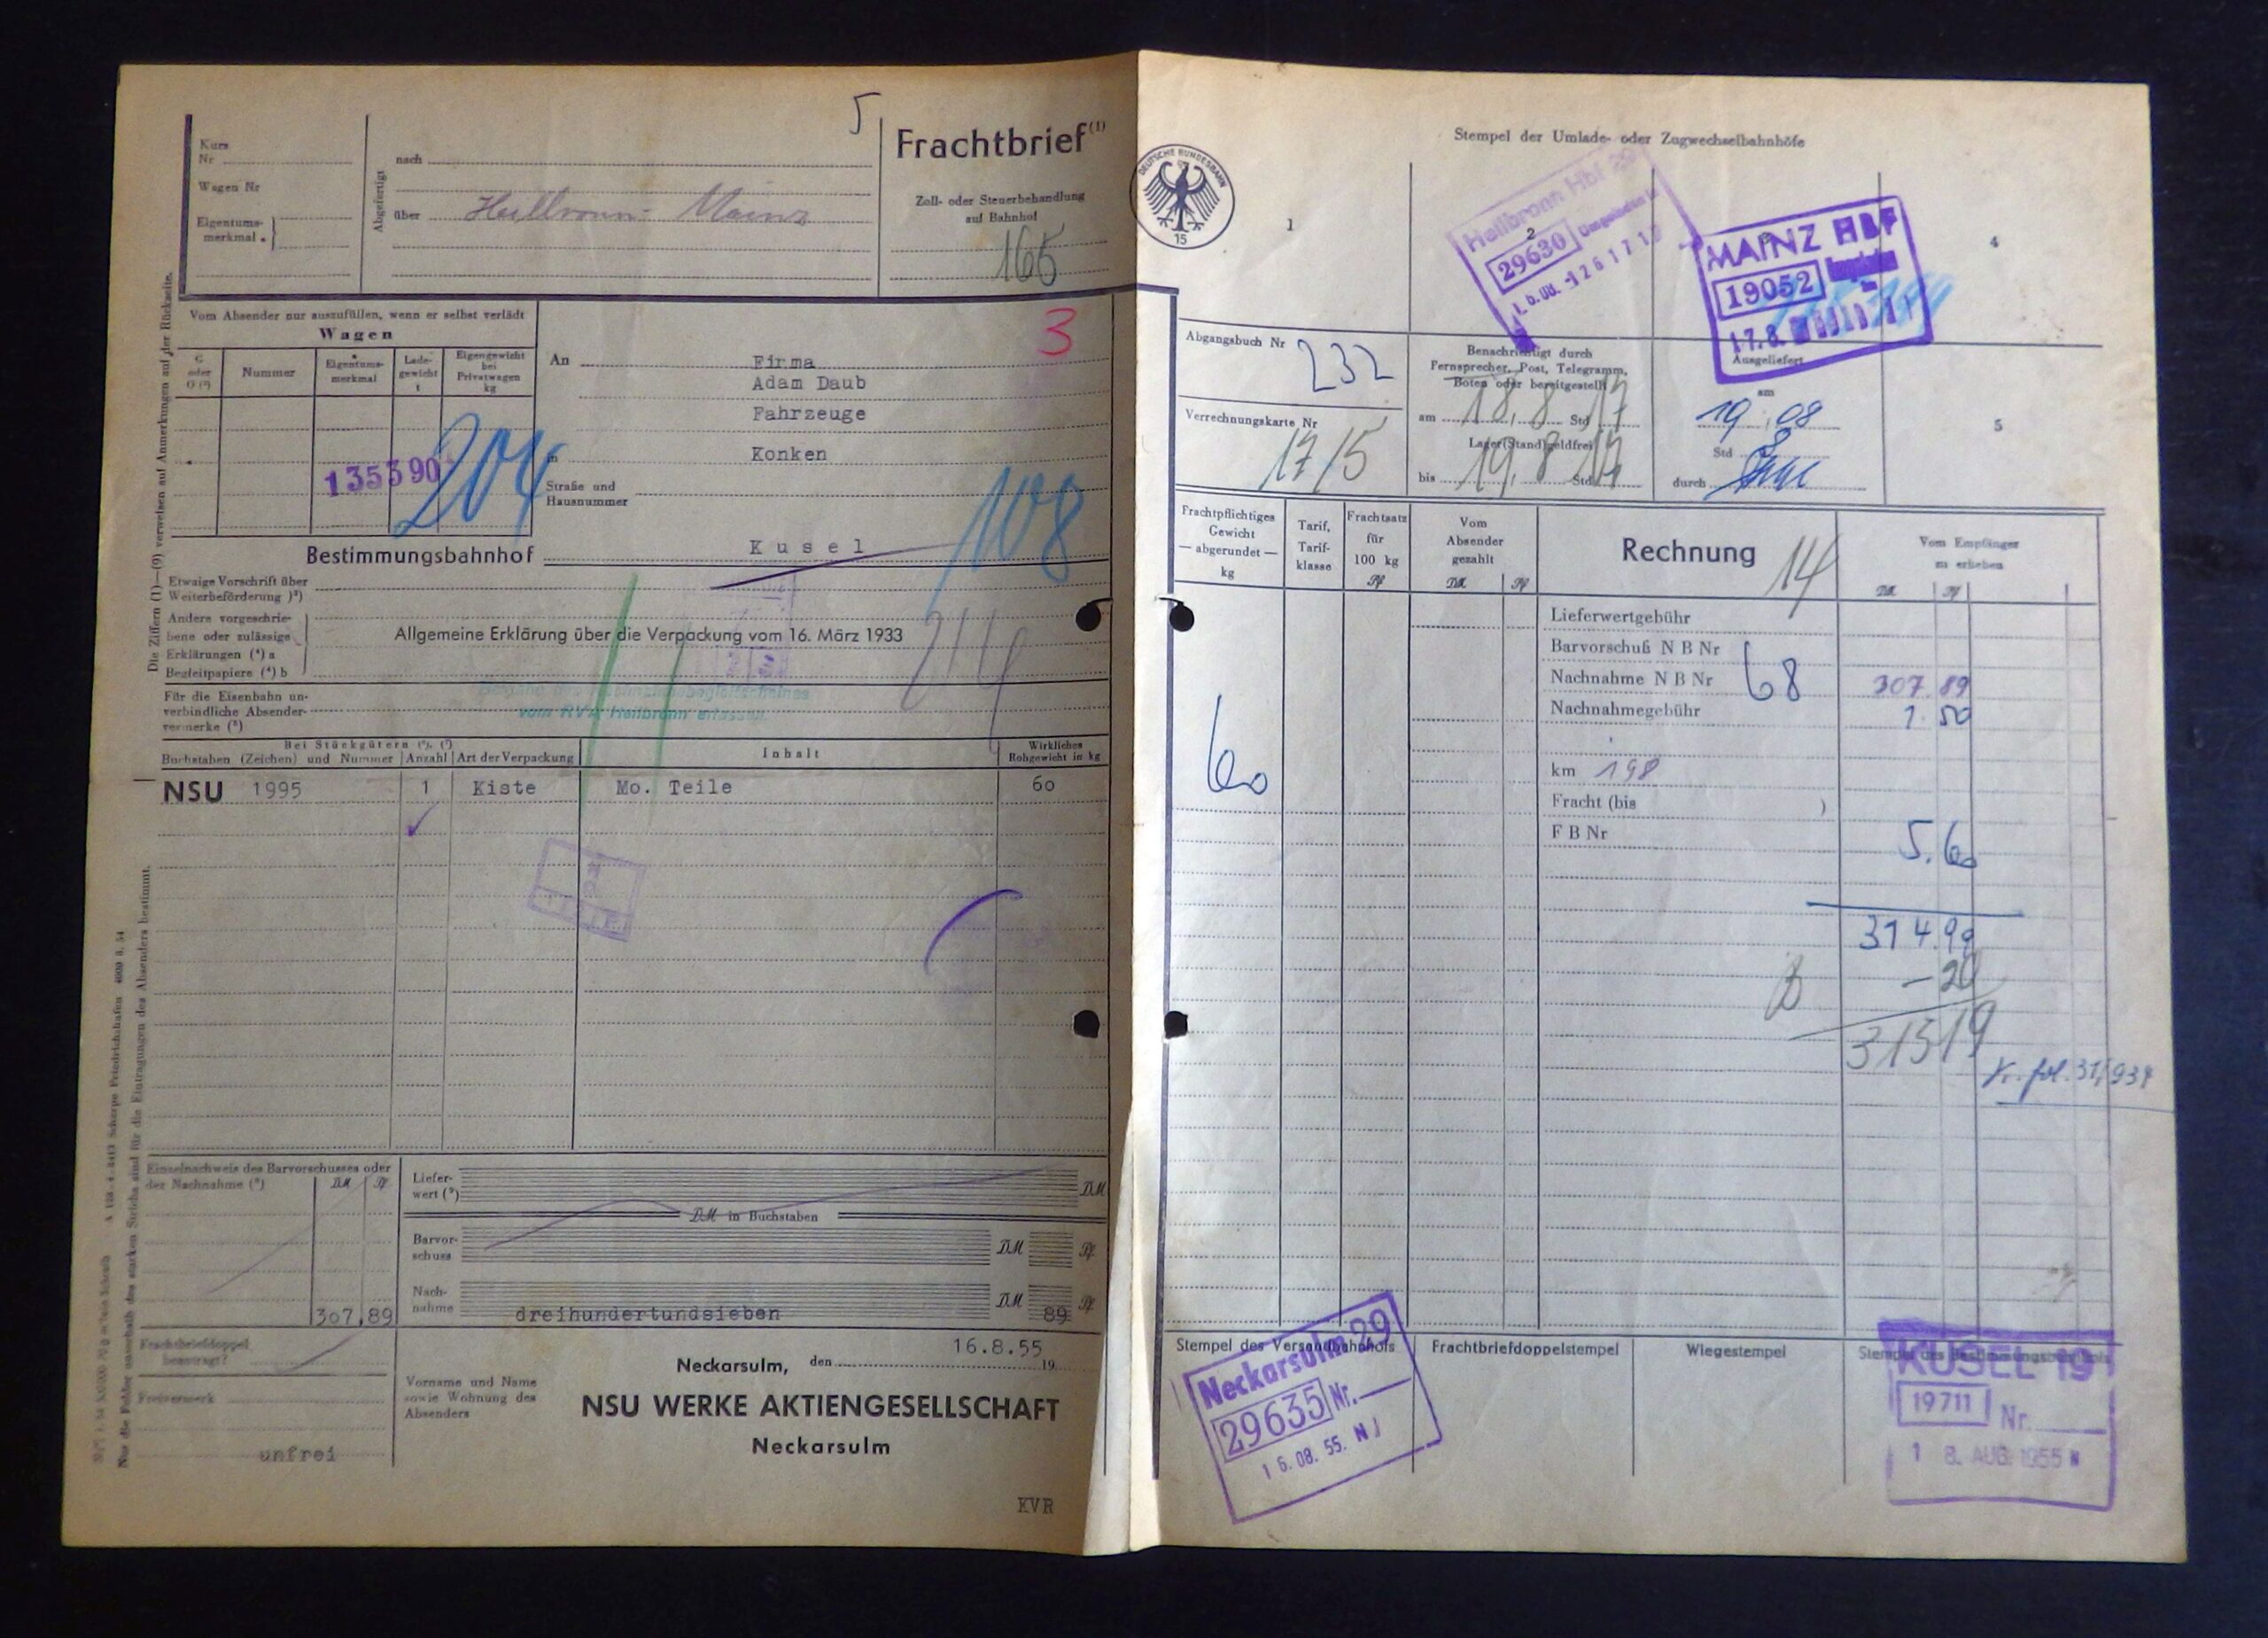 5
Frachtbrief (1)
Kurs
Nr
Wagen Nr
Eigentums-
merkmal
Abgefertigt
nach
über Heilbronn - Mainz
Zoll- oder Steuerbehandlung
auf Bahnhof
165
Die Ziffern (1)—(9) verweisen auf Anmerkungen auf der Rückseite.
Vom Absender nur auszufüllen, wenn er selbst verlädt
Wagen
G
oder
O (²)
Nummer
Eigentums-
merkmal
Lade-
gewicht
t
Eigengewicht
bei
Privatwagen
kg
135390
204
3
An Firma
Adam Daub
Fahrzeuge
in Konken
Straße und
Hausnummer
108
Bestimmungsbahnhof Kusel
Etwaige Vorschrift über
Weiterbeförderung )³)
Andere vorgeschrie-
bene oder zulässige
Erklärungen (⁴) a
Begleitpapiere (⁴) b
Allgemeine Erklärung über die Verpackung vom 16. März 1933
214
Für die Eisenbahn un-
verbindliche Absender-
vermerke (⁵)
vom RVA Heilbronn erlassen.
Bei Stückgütern (⁶), (⁷)
Buchstaben (Zeichen) und Nummer
Anzahl
Art der Verpackung
Inhalt
Wirkliches
Rohgewicht in kg
NSU 1995 1 Kiste Mo. Teile 60
Nur die Felder innerhalb des starken Strichs sind für die Eintragungen des Absenders bestimmt.
Einzelnachweis des Barvorschusses oder
der Nachnahme (⁸)
DM Pf
307,89
Liefer-
wert (⁹)
DM
DM in Buchstaben
Barvor-
schuss
DM Pf
Nach-
nahme
dreihundertundsieben DM 89 Pf
Frachtbriefdoppel
beantragt?
Freivermerk
unfrei
Neckarsulm, den 16.8.55 19
Vorname und Name
sowie Wohnung des
Absenders
NSU WERKE AKTIENGESELLSCHAFT
Neckarsulm
KVR
DEUTSCHE BUNDESBAHN
15
Stempel der Umlade- oder Zugwechselbahnhöfe
1
2
4
5
Heilbronn Hbf
29630
MAINZ HBF
19052
17.8.
Abgangsbuch Nr
232
Verrechnungskarte Nr
17/5
Benachrichtigt durch
Fernsprecher, Post, Telegramm,
Boten oder bereitgestellt
am 18.8. Std 17
Lager(Stand)geldfrei
bis 19.8 Std 17
Ausgeliefert
am
19.08
Std
durch
Frachtpflichtiges
Gewicht
— abgerundet —
kg
Tarif,
Tarif-
klasse
Frachtsatz
für
100 kg
Pf
Vom
Absender
gezahlt
DM Pf
Rechnung 14
Vom Empfänger
zu erheben
DM Pf
Lieferwertgebühr
Barvorschuß N B Nr
Nachnahme N B Nr 68 307.89
Nachnahmegebühr 1.50
60
km 198
Fracht (bis )
F B Nr
5.60
314.99
—20
31519
fol. 31/934
Stempel des Versandbahnhofs
Frachtbriefdoppelstempel
Wiegestempel
Stempel des Bestimmungsbahnhofs
Neckarsulm 29
29635 Nr.
16.08.55. N
KUSEL 19
19711 Nr.
18. AUG. 1955